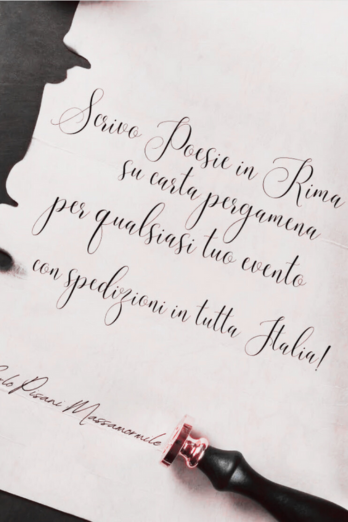 Scrivo Poesie in Rima
su carta pergamena
per qualsiasi tuo evento
con spedizioni in tutta Italia!
Pisani Massamormile